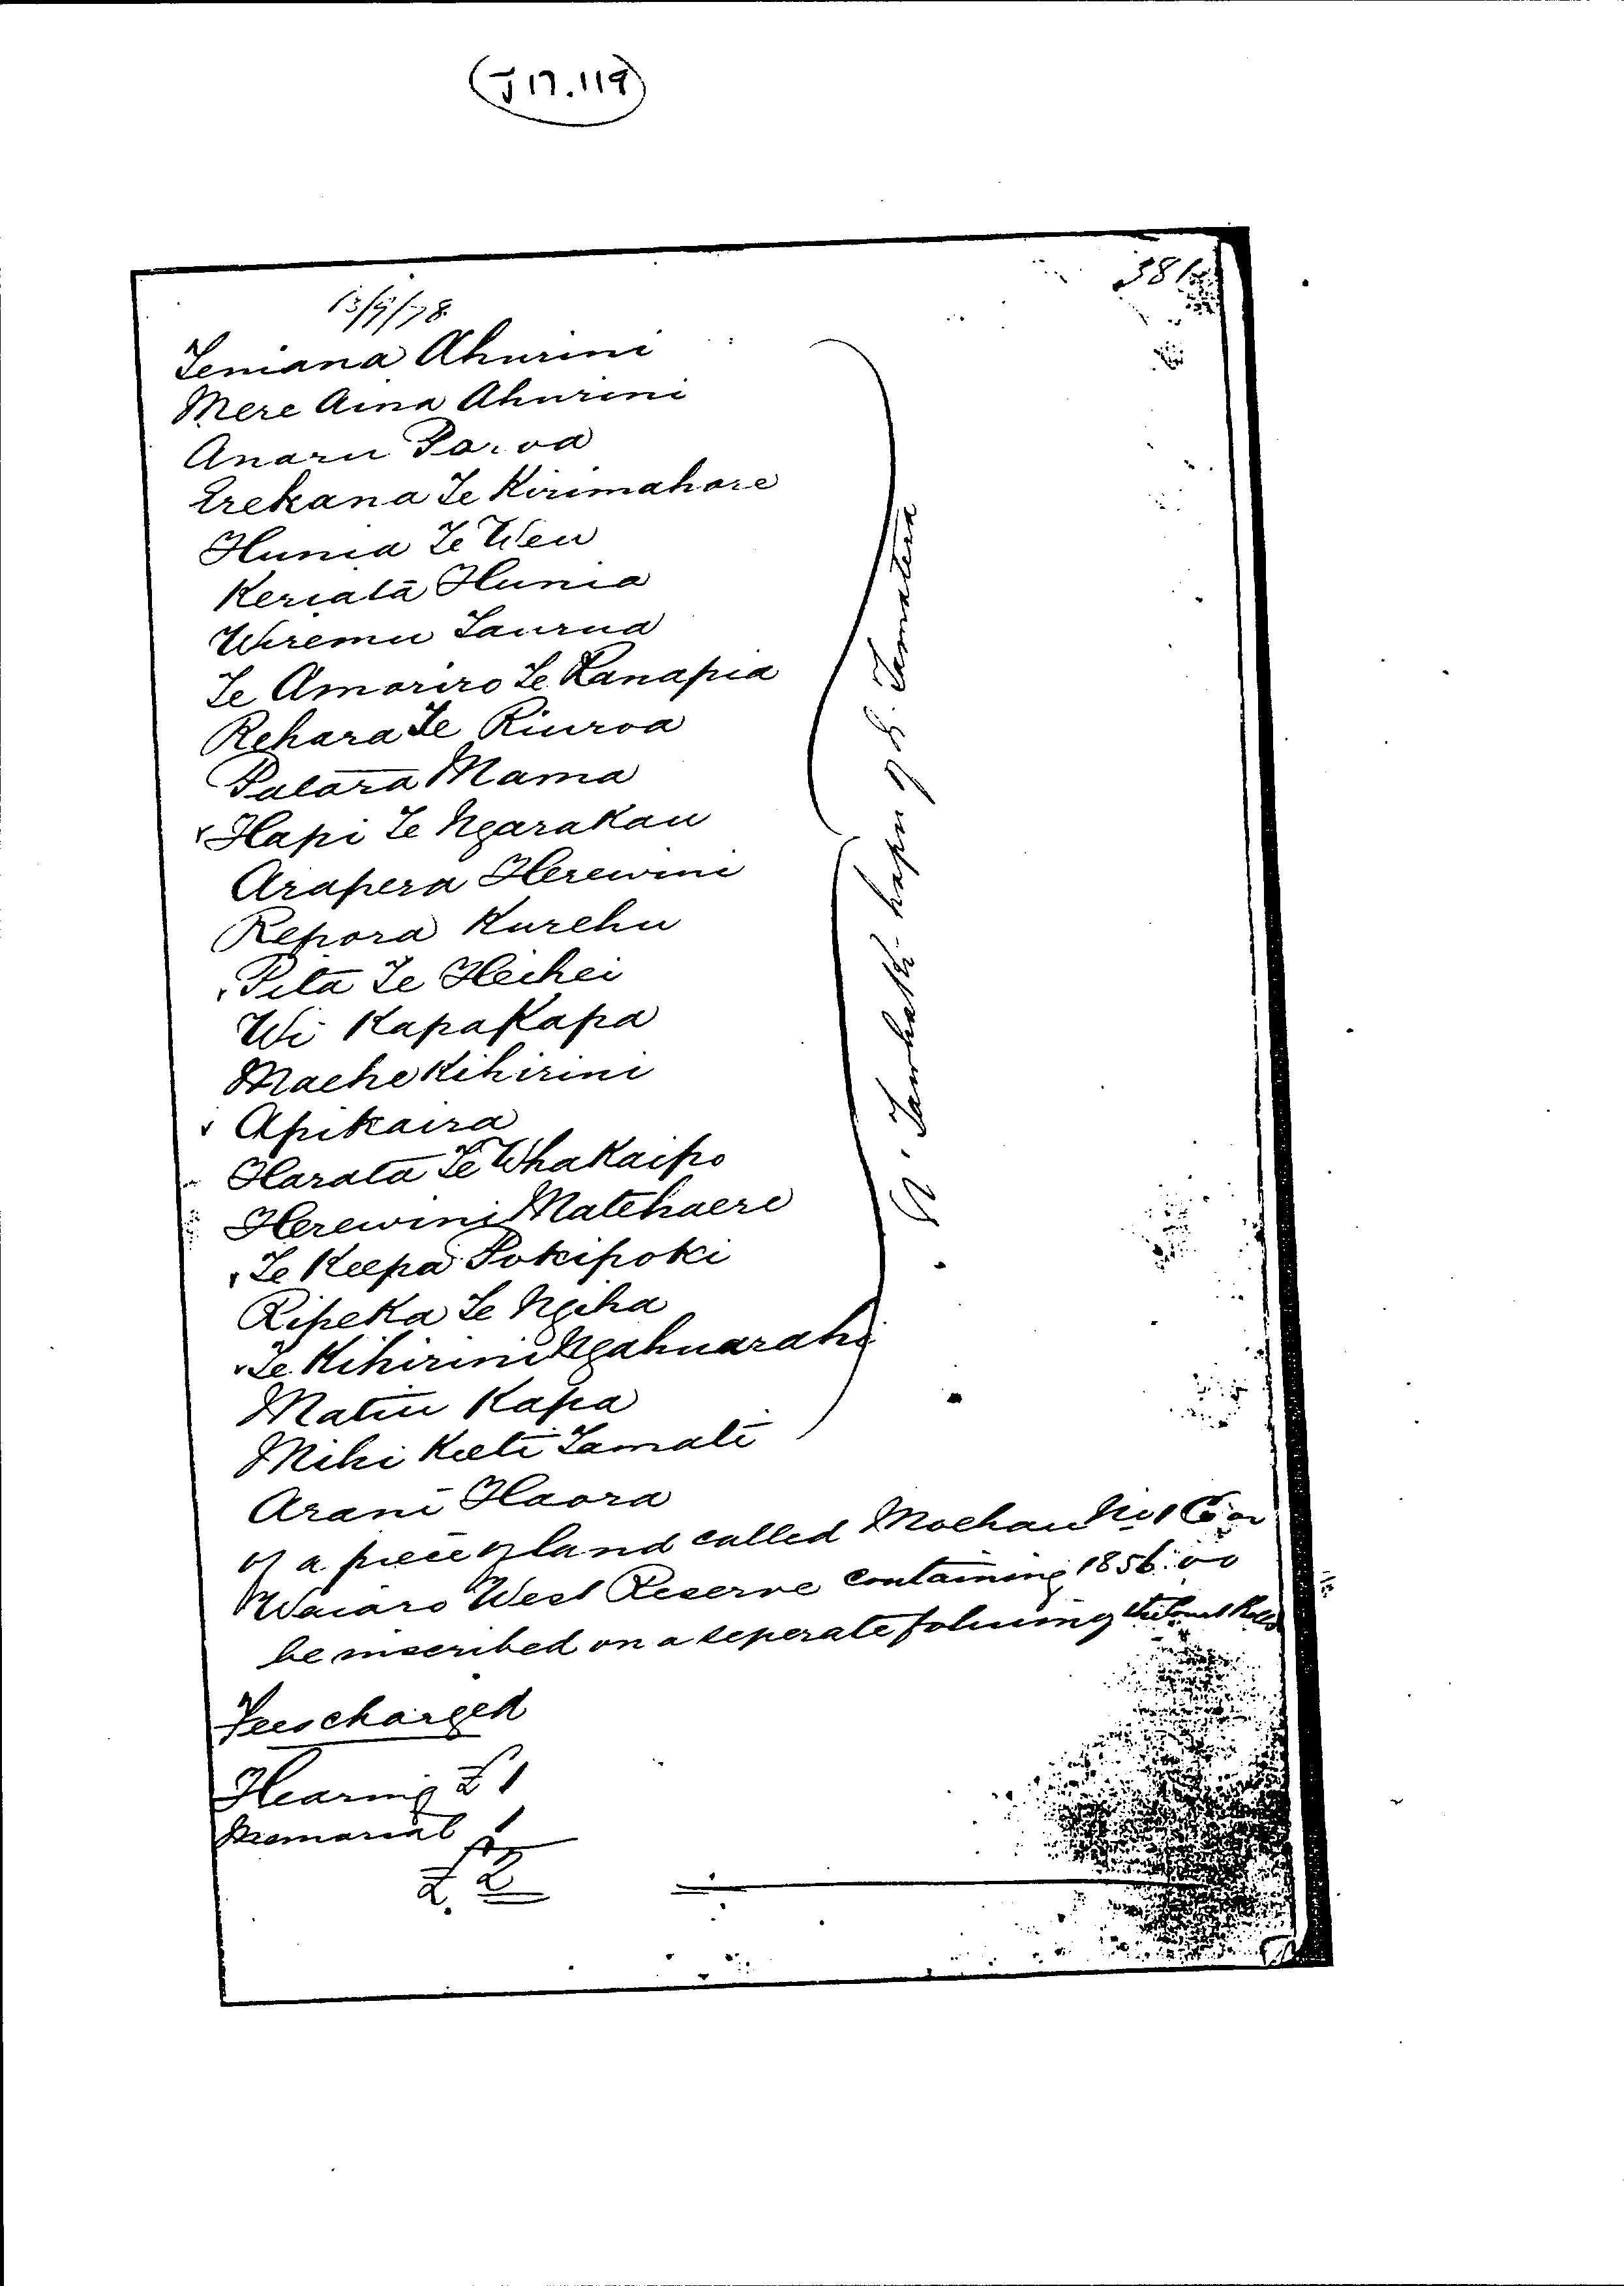 (J 17.119)
381
13/9/78
Teniana Ahurini
Mere Aina Ahurini
Anaru Paroa
Erekana Te Kirimahore
Hunia Te Weu
Keriata Hunia
Wiremu Taurua
Te Amoriro Te Ranapia
Rehara Te Riuroa
Patara Mama
Hapi Te Ngarakau
Arapera Herewini
Repora Kurehu
Pita Te Heihei
Wi Kapakapa
Maehe Kihirini
Apikaira
Harata Te Whakaipo
Herewini Matehaere
Te Keepa Pokipoki
Ripeka Te Ngiha
Te Kihirini Ngahuarahi
Matiu Kapa
Mihi Keeti Tamati
Arani Haora
hapu of N. Tamatera
of a piece of land called Moehau No 1 C or
Waiaro West Reserve containing 1856.0.0
be inscribed on a seperate folium of the Court Rolls
Fees charged
Hearing £1
Memorial 1
£.2